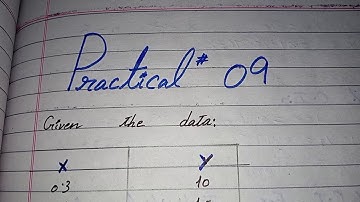 Practical # 09
Given the data:
X Y
0.3 10